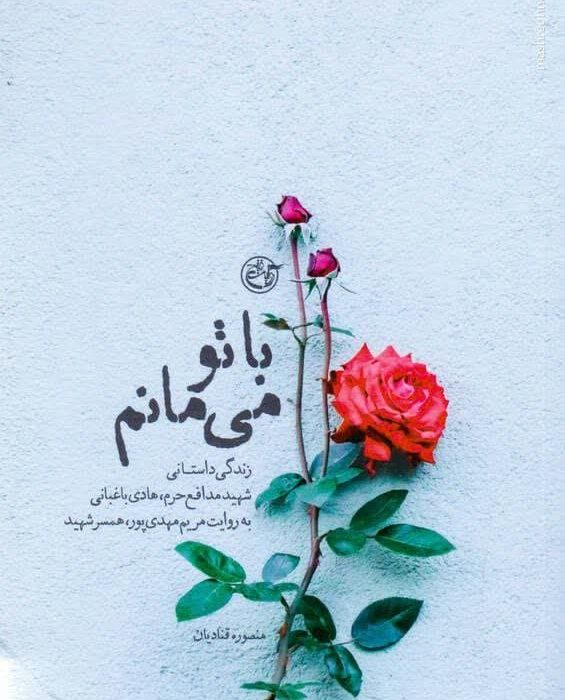 با تو
می‌مانم
زندگی داستانی
شهید مدافع حرم، هادی باغبانی
به روایت مریم مهدی‌پور، همسر شهید
منصوره قنادیان